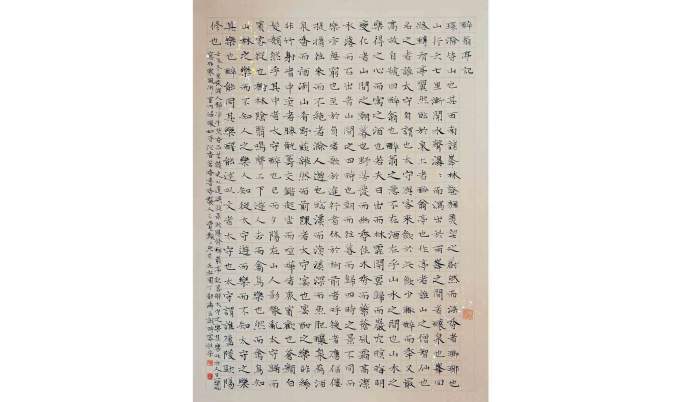 醉翁亭記
環滁皆山也其西南諸峯林壑猶美望之蔚然而深秀者瑯琊也
山行六七里漸聞水聲潺：而瀉出於兩峯之間者釀泉也峯回
路轉有亭翼然臨於泉上者醉翁亭也作亭者誰山之僧智仙也
名之者誰太守自謂也太守與客來飲於此飲少輒醉而年又最
高故自號曰醉翁也醉翁之意不在酒在乎山水之間也山水之
樂得之心而寓之酒也若夫日出而林霏開雲歸而巖穴暝晦明
變化者山間之朝暮也野芳發而幽香佳木秀而繁蔭風霜高潔
水落而石出者山間之四時也朝而往暮而歸四時之景不同而
樂亦無窮也至於負者歌於途行者休於樹前者呼後者應傴僂
提攜往來而不絕者滁人遊也臨溪而漁溪深而魚肥釀泉為酒
泉香而酒洌山肴野蔌雜然而前陳者太守宴也宴酣之樂非絲
非竹射者中弈者勝觥籌交錯起坐而諠譁者衆賓歡也蒼顏白
髮頹然乎其中者太守醉也已而夕陽在山人影散亂太守歸而
賓客從也樹林陰翳鳴聲上下遊人去而禽鳥樂也然而禽鳥知
山林之樂而不知人之樂人知從太守遊而樂而不知太守之樂
其樂也醉能同其樂醒能述以文者太守也太守謂誰廬陵歐陽
修也